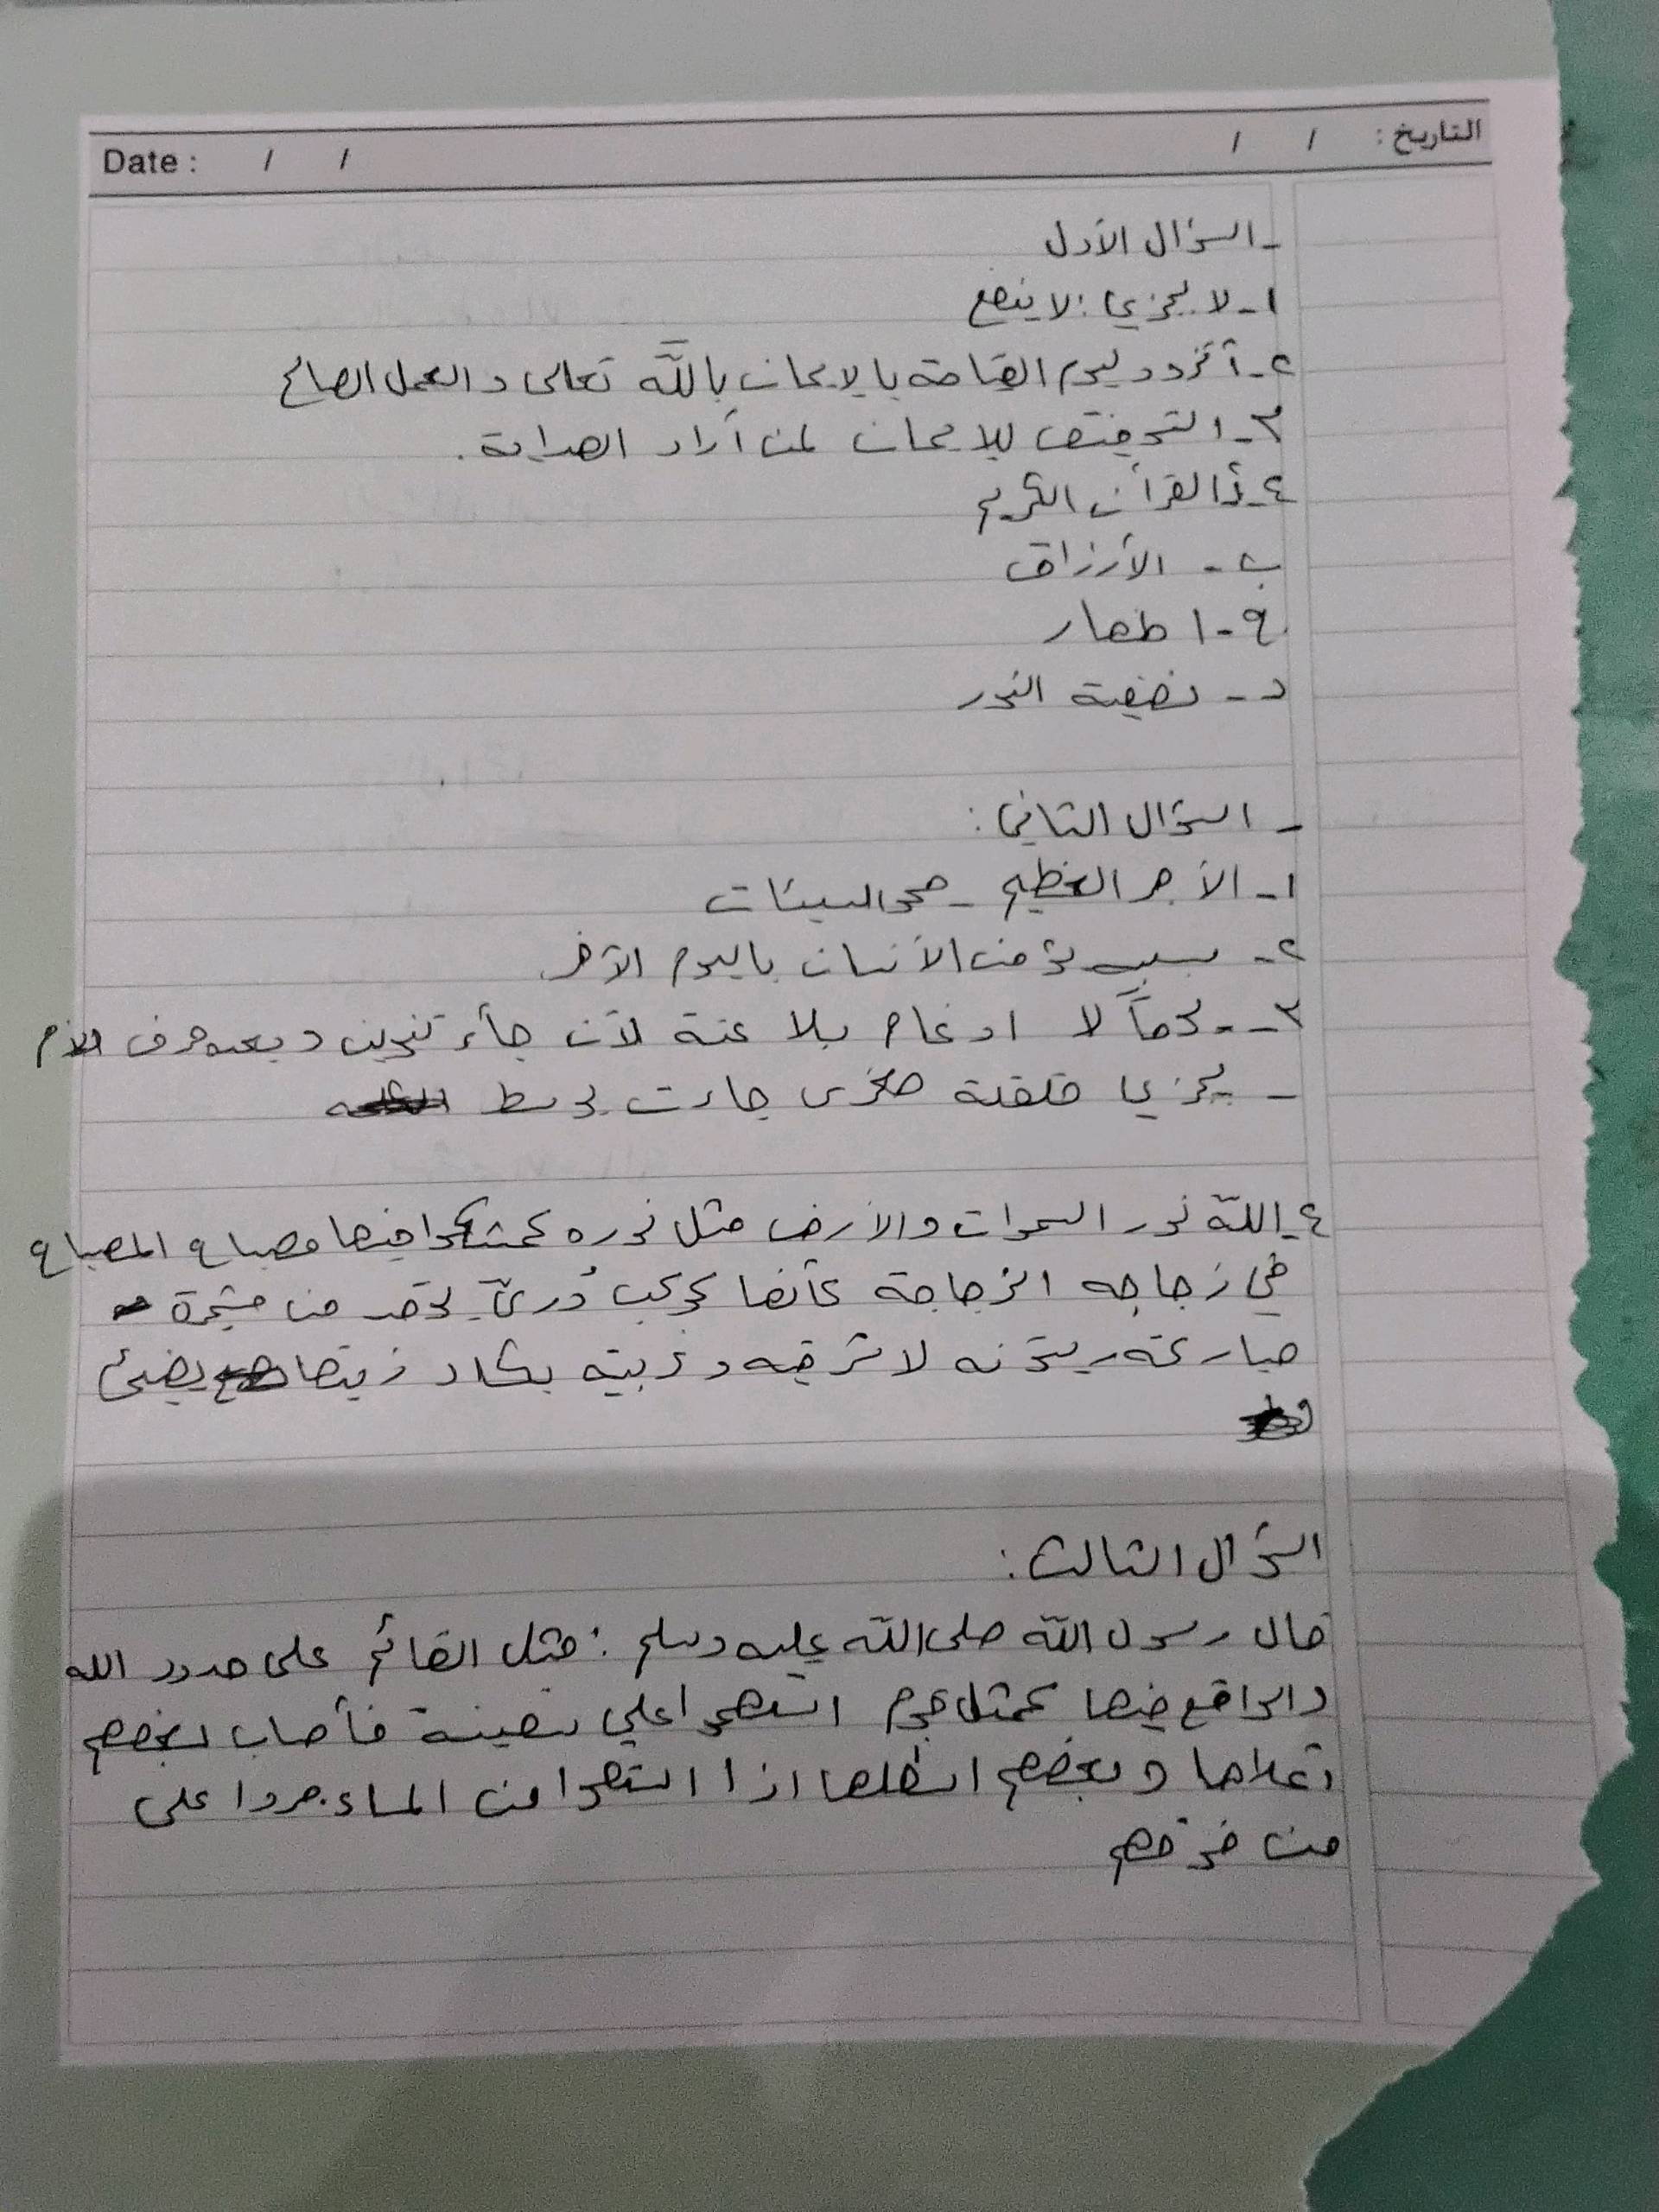 التاريخ : / /
Date : / /
- السؤال الأول
١- لا يجزي : لا ينفع
٢- أتزود ليوم القيامة بالايمان بالله تعالى و العمل الصالح
٣- التوفيق للايمان لمن أراد الهداية .
٤- أ القرآن الكريم
ب - الأرزاق
ج - اظهار
د - نصفية النور
- السؤال الثاني :
١- الأجر العظيم - محو السيئات
٢- بسبب يؤمن الأنسان باليوم الآخر
٣- - يوماً لا ادغام بلا غنة لأن جاء تنوين و بعده حرف الام
- يجزي قلقلة صغرى جاءت بوسط
٤- الله نور السموات والأرض مثل نوره كمشكوا فيها مصباح المصباح
في زجاجه الزجاجة كأنها كوكب دريّ يوقد من شجرة
مباركة زيتونه لا شرقيه و غربيته يكاد زيتها يضيئ
السؤال الثالث :
قال رسول الله صلى الله عليه وسلم : مثل القائم على حدود الله
والواقع فيها كمثل قوم استهموا علي سفينة فأصاب بعضهم
أعلاها و بعضهم اسفلها اذا استقوا من الماء مروا على
من فوقهم